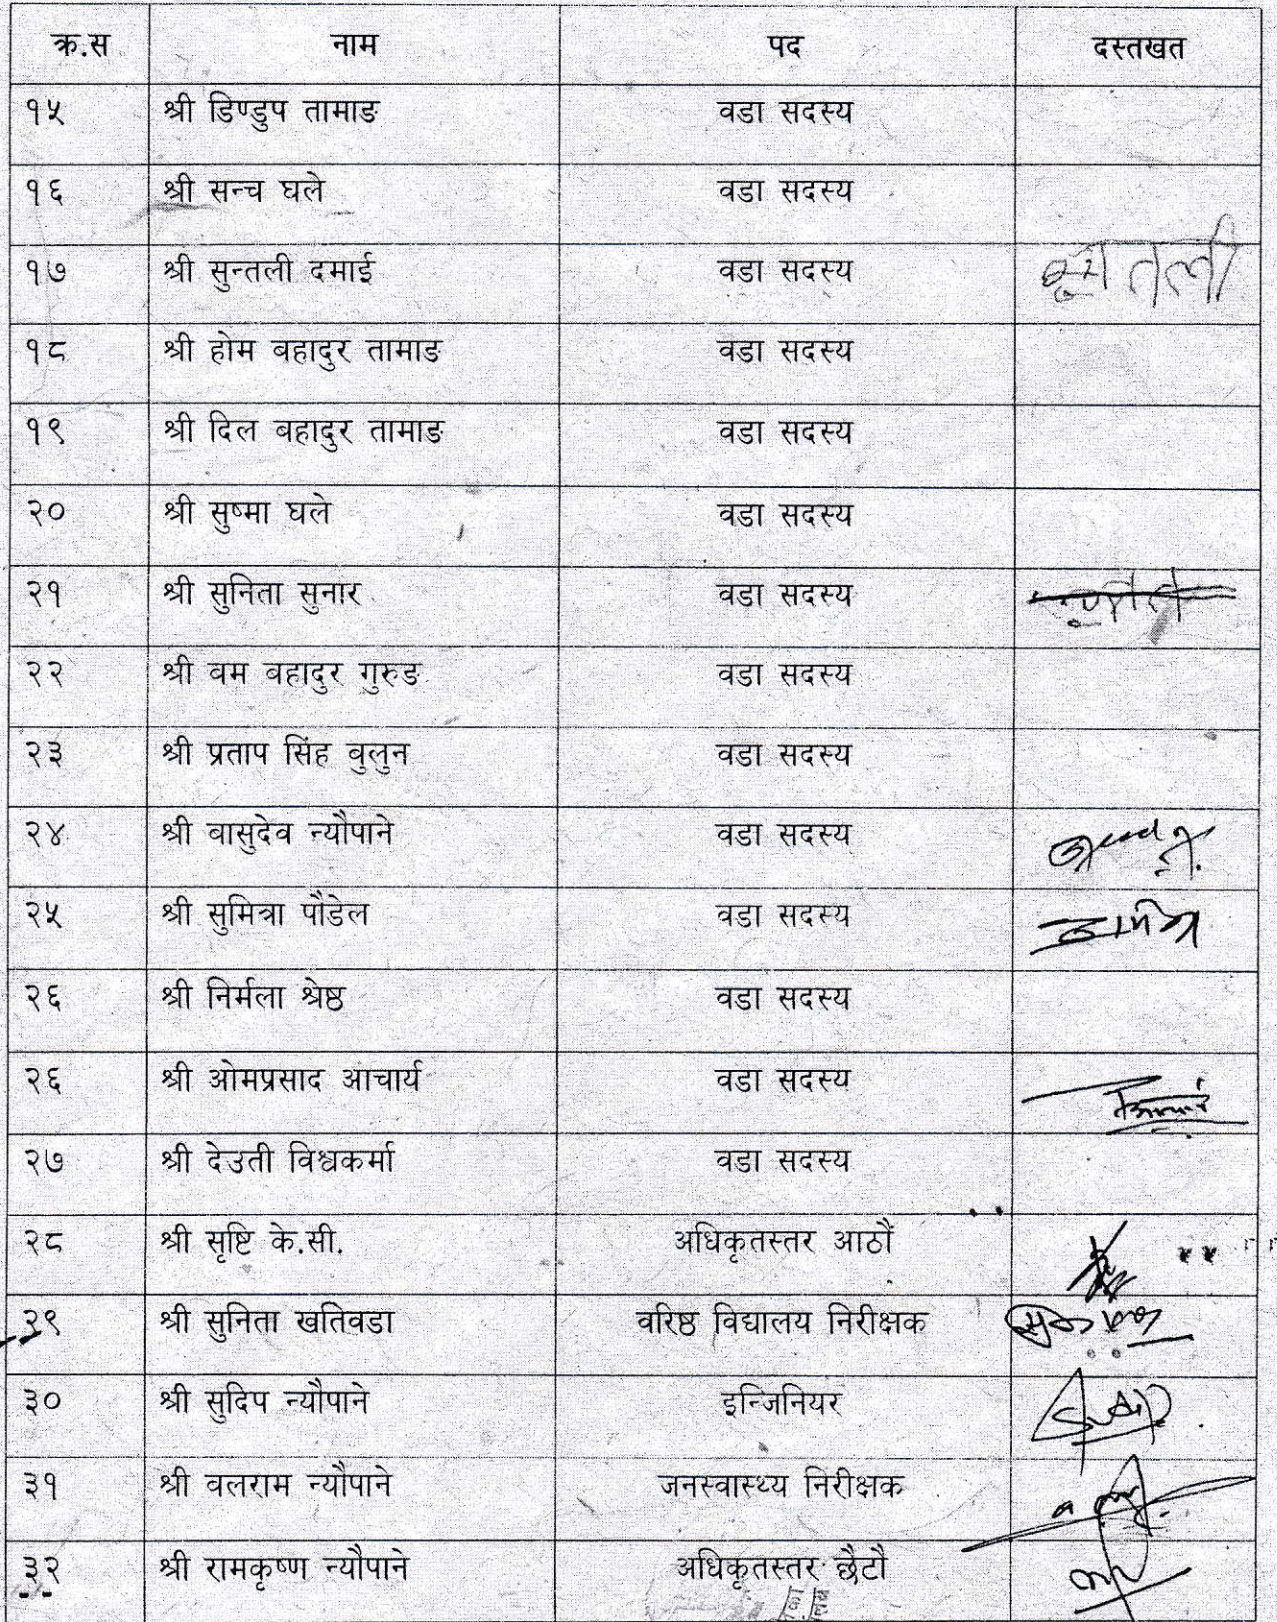 क्र.स नाम पद दस्तखत
१५ श्री डिण्डुप तामाङ वडा सदस्य
१६ श्री सन्च घले वडा सदस्य
१७ श्री सुन्तली दमाई वडा सदस्य
१८ श्री होम बहादुर तामाङ वडा सदस्य
१९ श्री दिल बहादुर तामाङ वडा सदस्य
२० श्री सुष्मा घले वडा सदस्य
२१ श्री सुनिता सुनार वडा सदस्य
२२ श्री वम बहादुर गुरुङ वडा सदस्य
२३ श्री प्रताप सिंह वुलुन वडा सदस्य
२४ श्री बासुदेव न्यौपाने वडा सदस्य
२५ श्री सुमित्रा पौडेल वडा सदस्य
२६ श्री निर्मला श्रेष्ठ वडा सदस्य
२६ श्री ओमप्रसाद आचार्य वडा सदस्य
२७ श्री देउती विश्वकर्मा वडा सदस्य
२८ श्री सृष्टि के.सी. अधिकृतस्तर आठौं
२९ श्री सुनिता खतिवडा वरिष्ठ विद्यालय निरीक्षक
३० श्री सुदिप न्यौपाने इन्जिनियर
३१ श्री वलराम न्यौपाने जनस्वास्थ्य निरीक्षक
३२ श्री रामकृष्ण न्यौपाने अधिकृतस्तर छैटौ